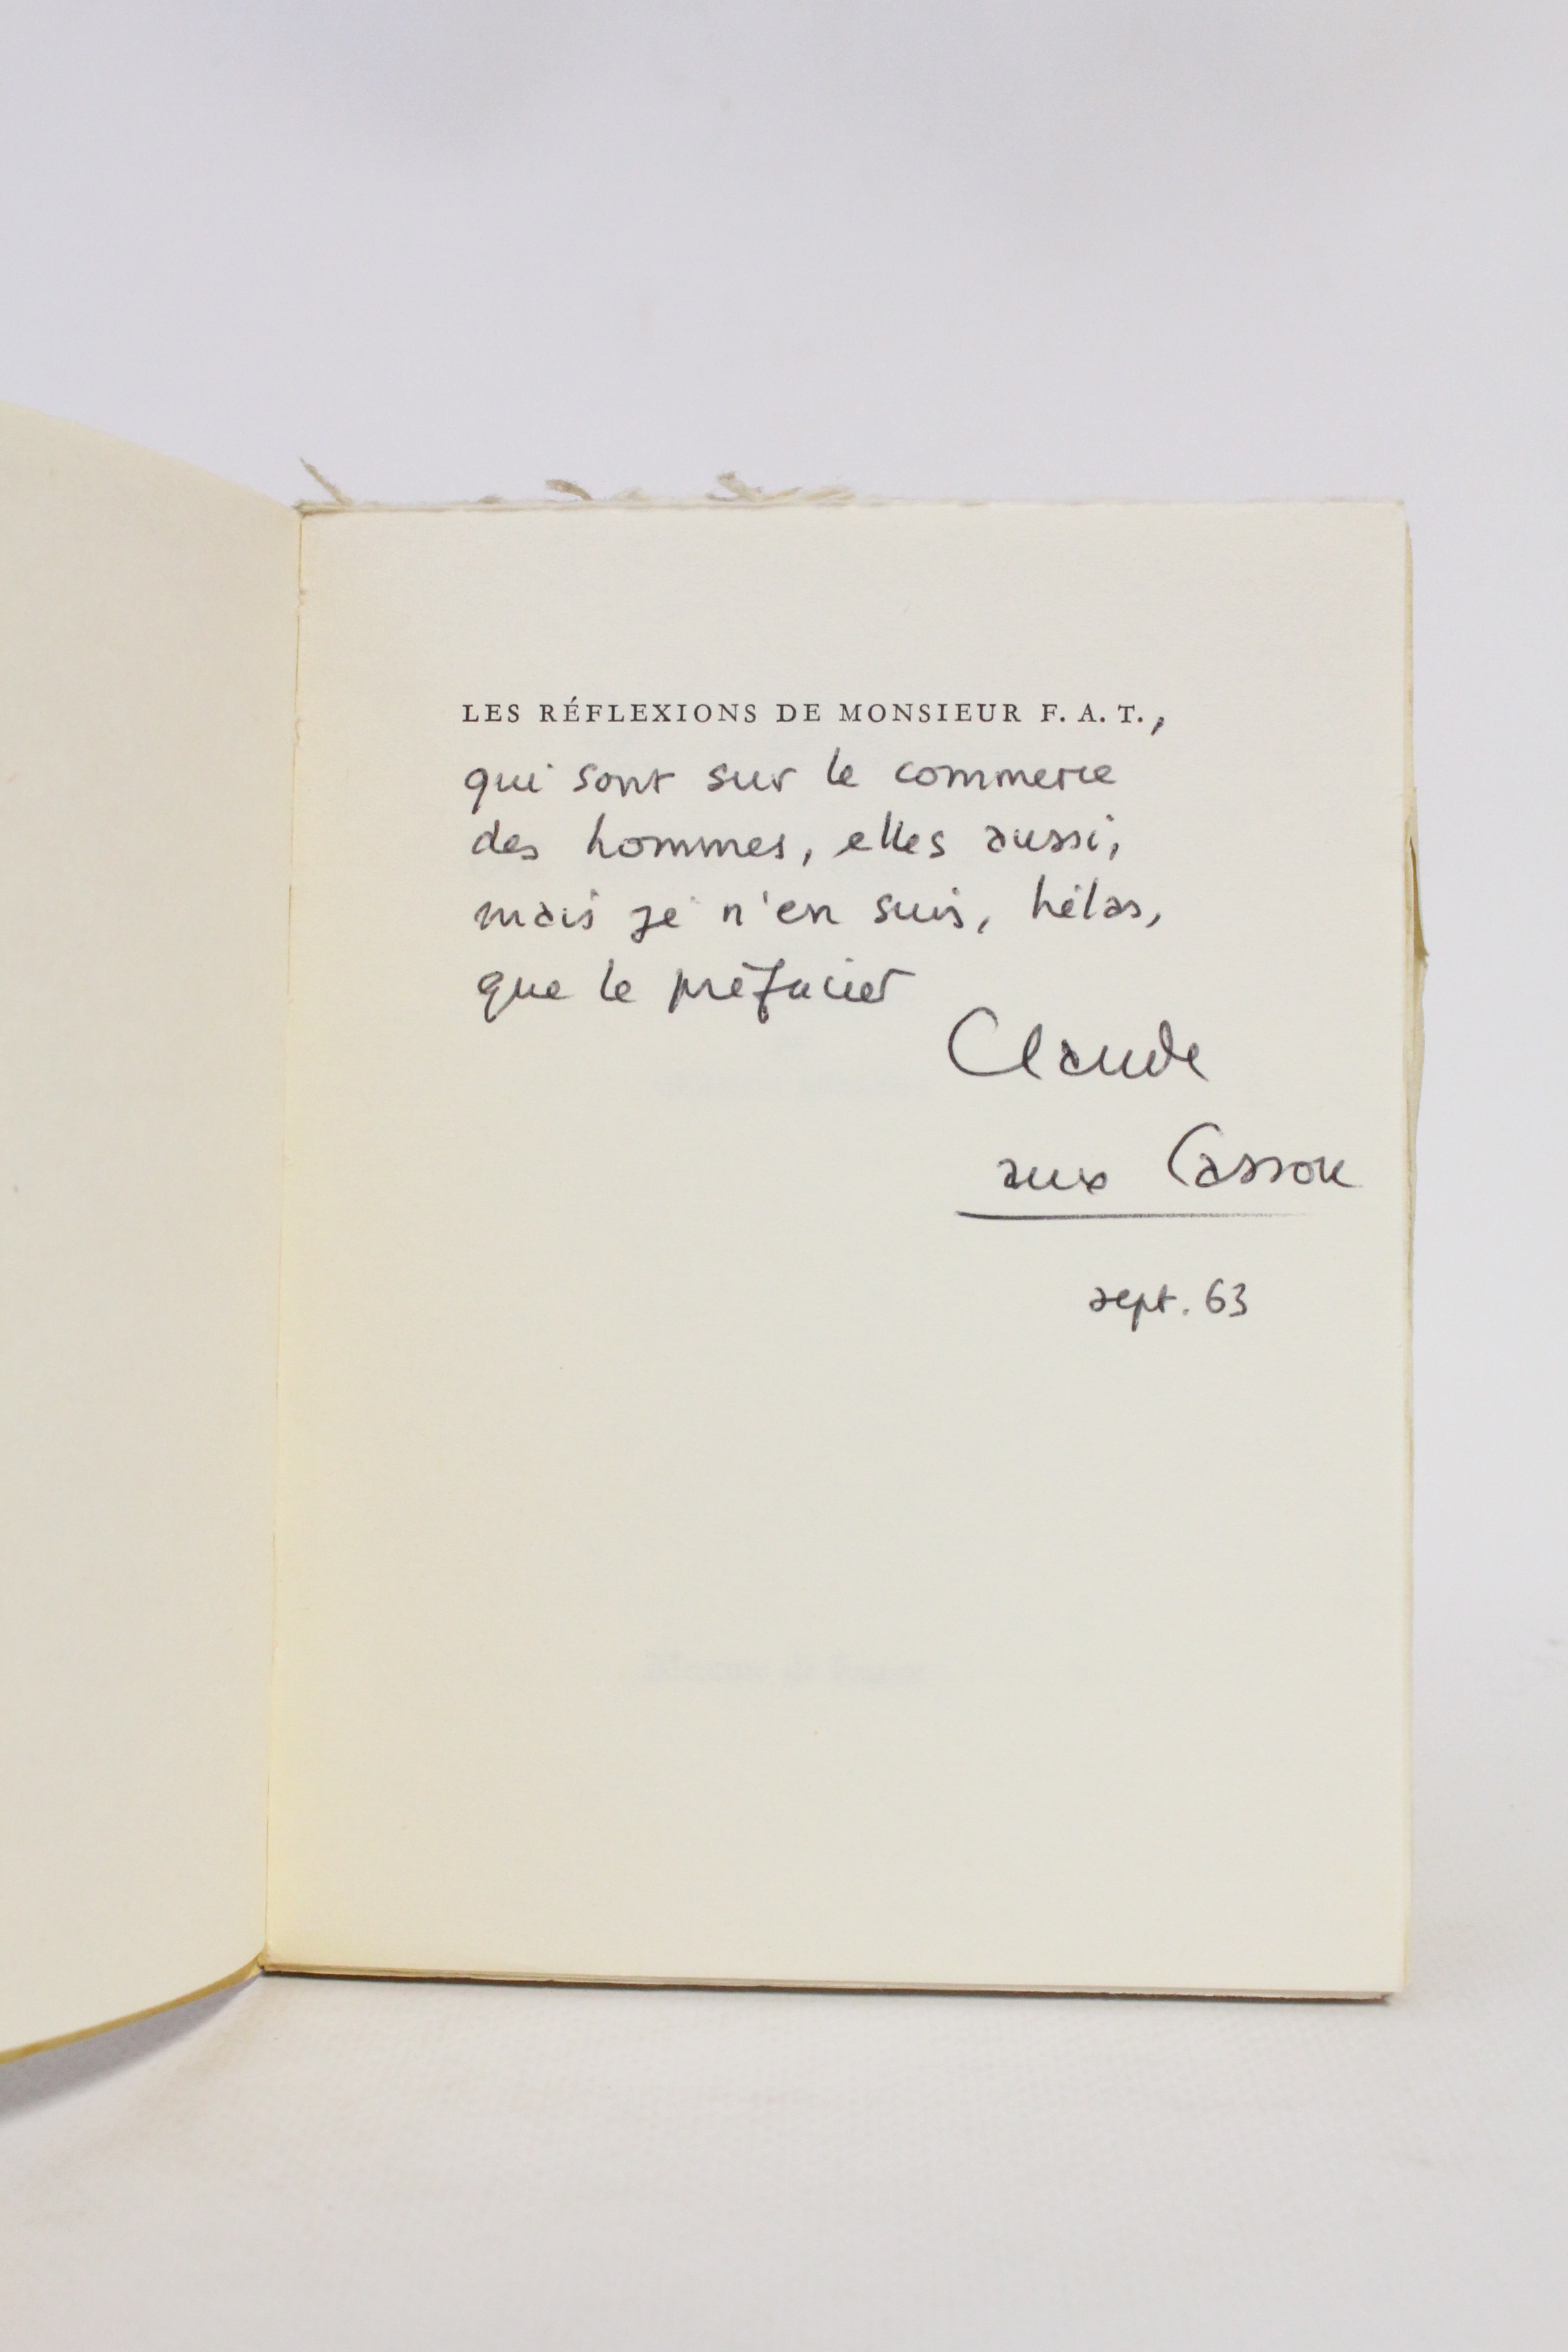 LES RÉFLEXIONS DE MONSIEUR F. A. T.,
qui sont sur le commerce
des hommes, elles aussi,
mais je n'en suis, hélas,
que le préfacier
Claude
aux Cassou
sept. 63